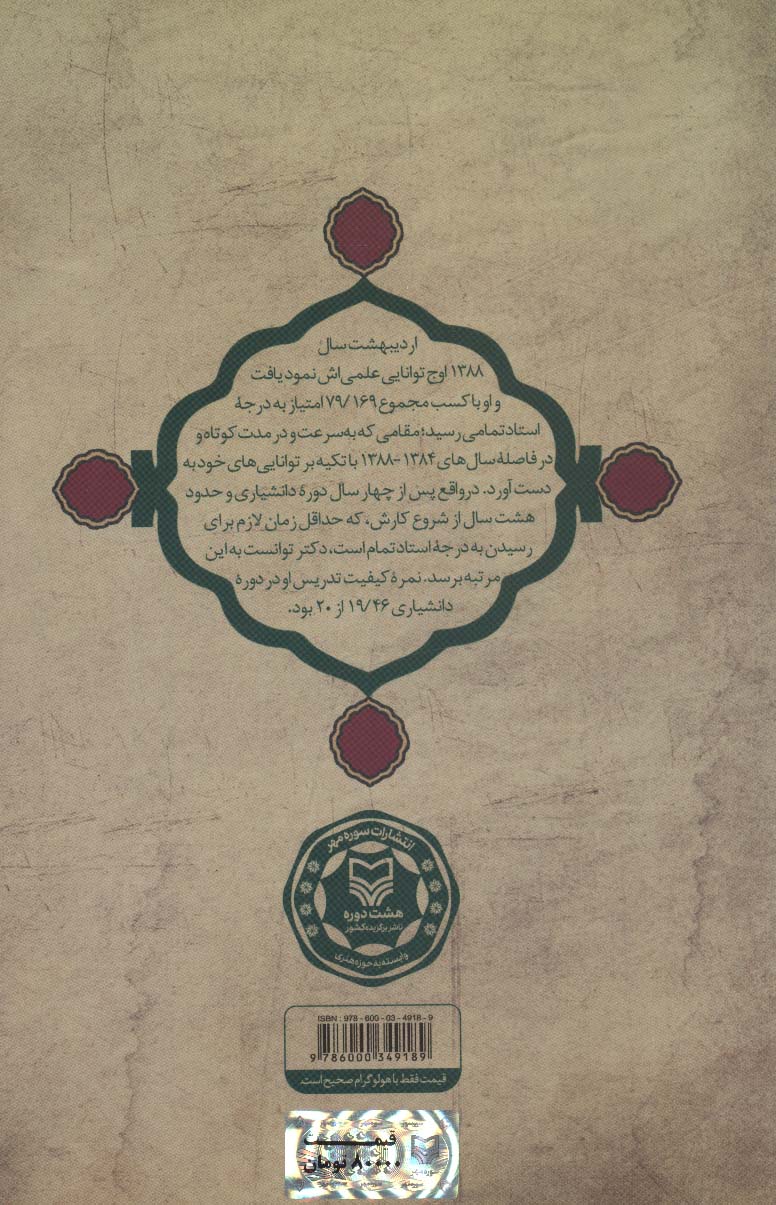 اردیبهشت سال
۱۳۸۸ اوج توانایی علمی‌اش نمود یافت
و او با کسب مجموع ۷۹/۱۶۹ امتیاز به درجهٔ
استادتمامی رسید؛ مقامی که به‌سرعت و در مدت کوتاه و
در فاصلهٔ سال‌های ۱۳۸۴-۱۳۸۸ با تکیه بر توانایی‌های خود به
دست آورد. درواقع پس از چهار سال دورهٔ دانشیاری و حدود
هشت سال از شروع کارش، که حداقل زمان لازم برای
رسیدن به درجهٔ استادتمام است، دکتر توانست به این
مرتبه برسد. نمرهٔ کیفیت تدریس او در دورهٔ
دانشیاری ۱۹/۴۶ از ۲۰ بود.
انتشارات سوره مهر
هشت دوره
ناشر برگزیده کشور
وابسته به حوزه هنری
ISBN : 978 - 600 - 03 - 4918 - 9
9 786000 349189
قیمت فقط با هولوگرام صحیح است.
قیمت
۸۰۰۰۰ تومان
سوره مهر